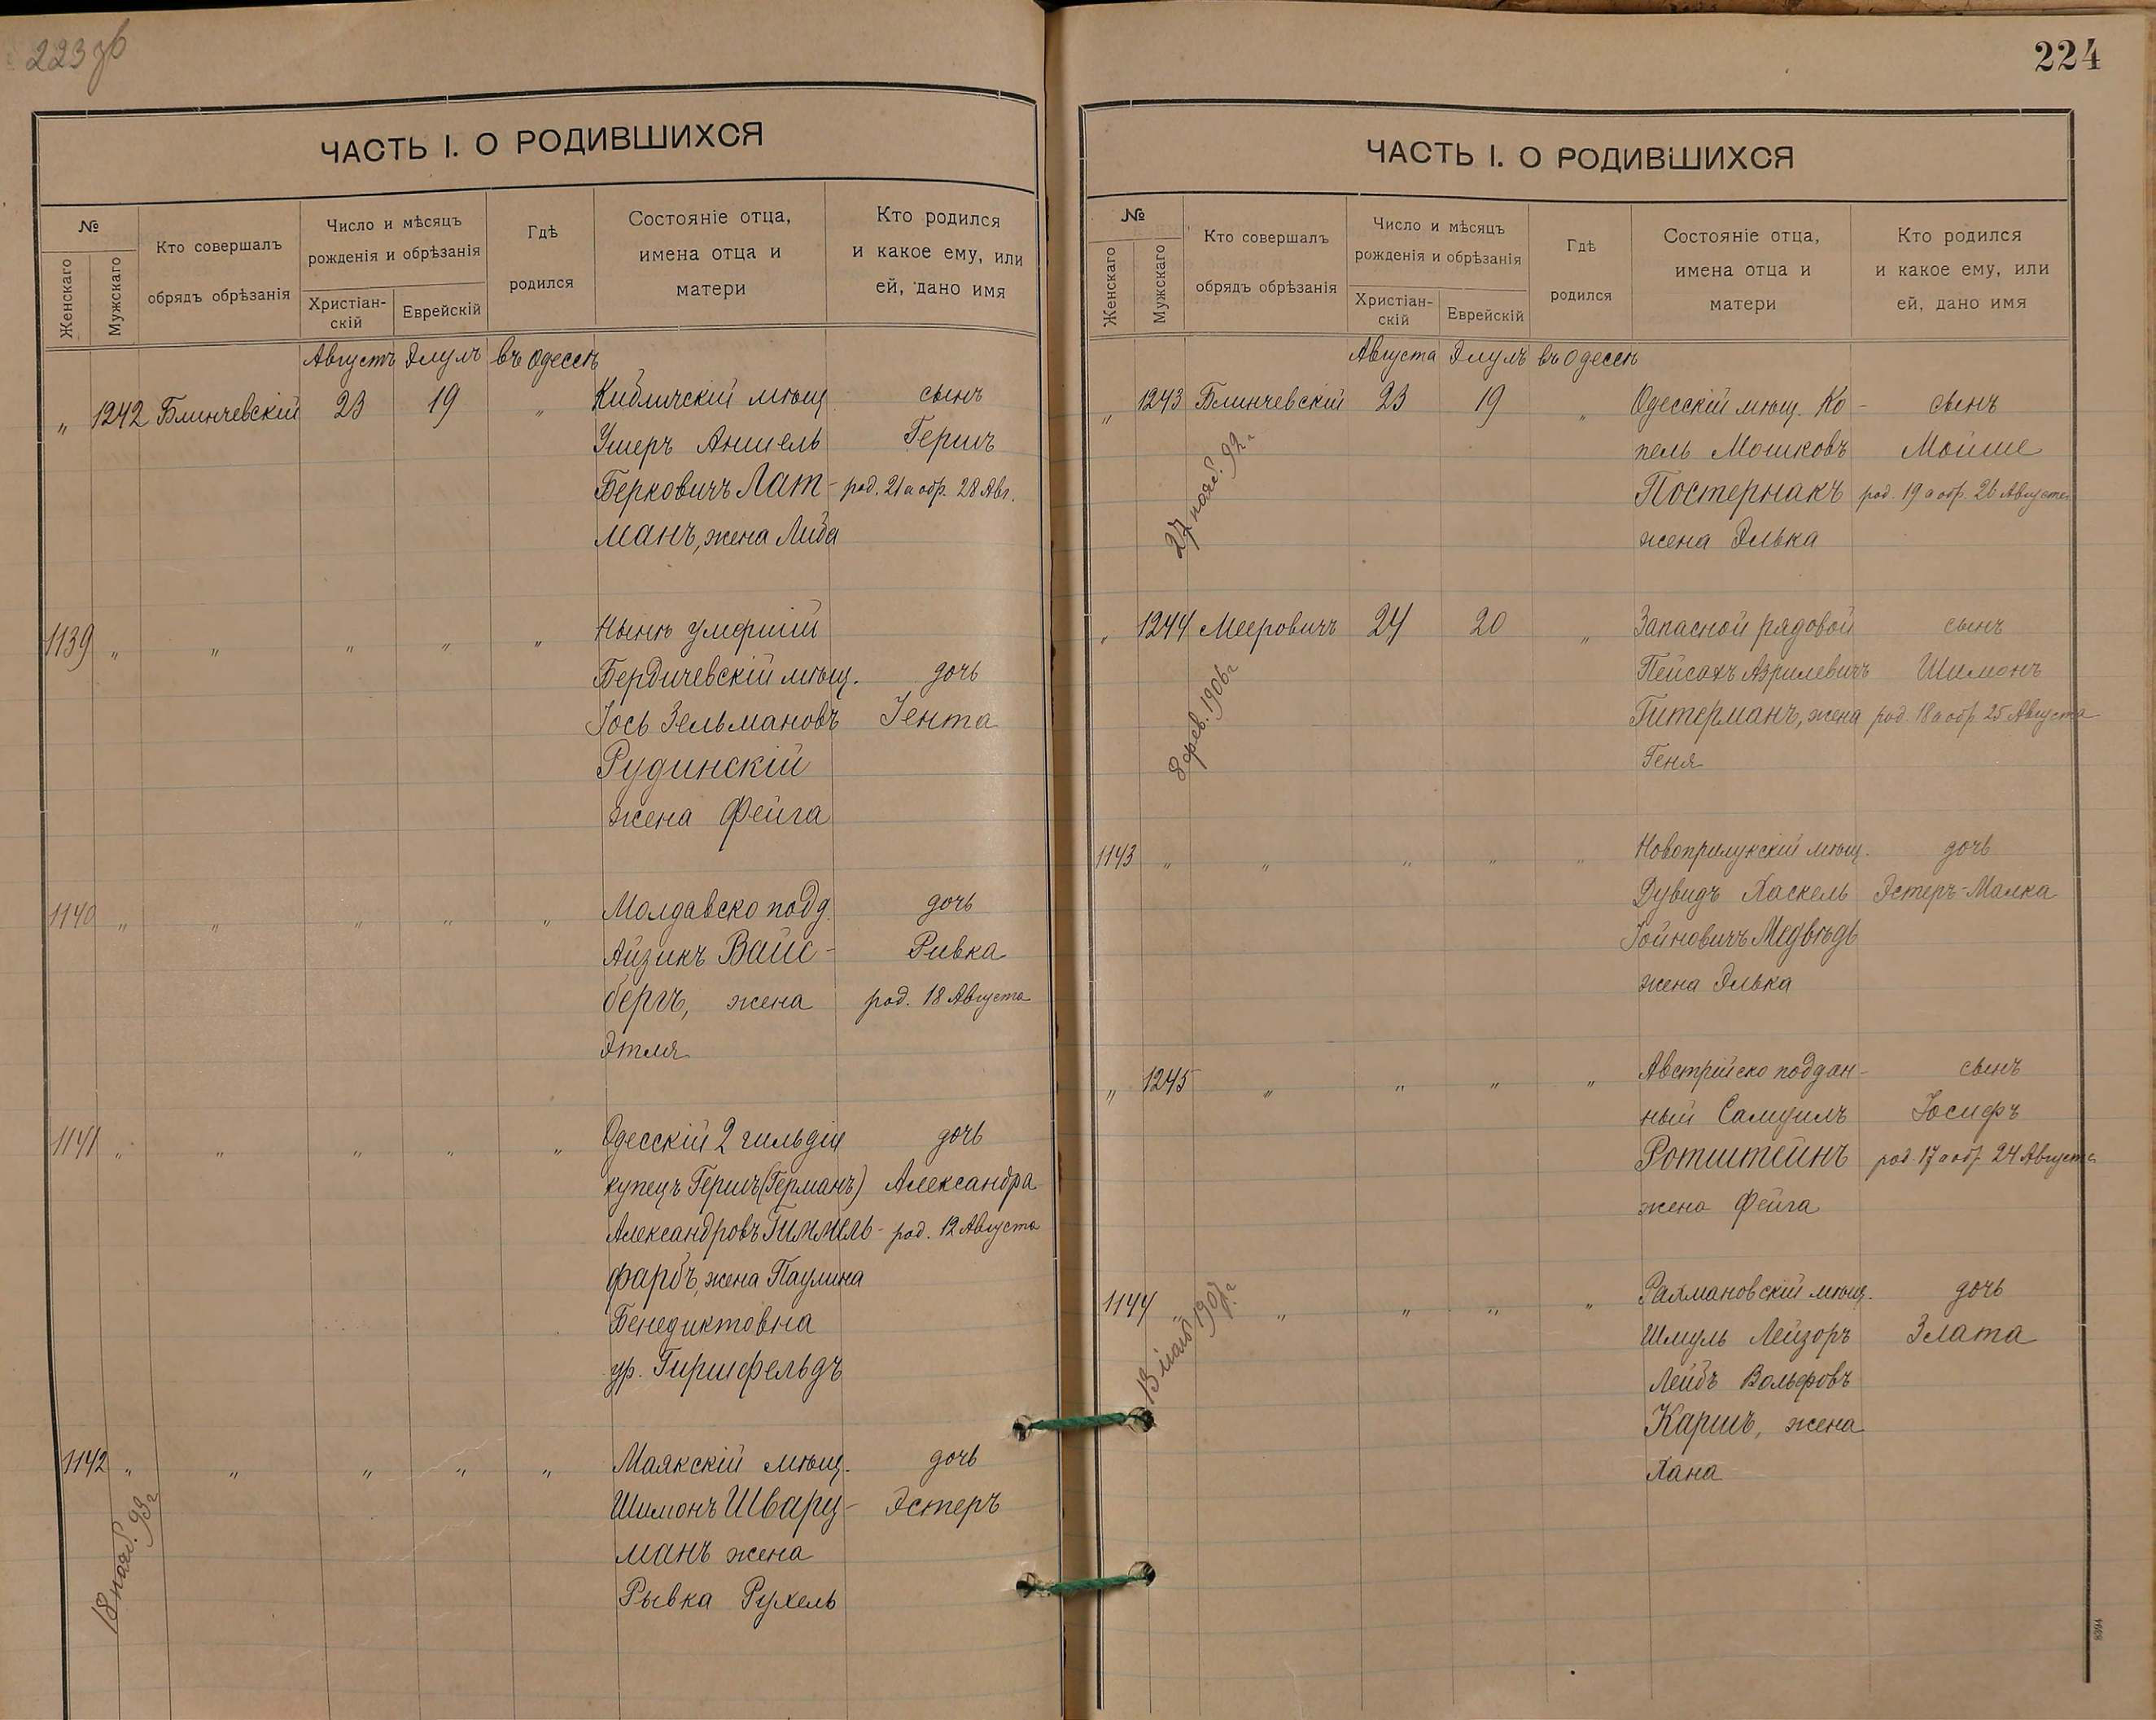 223 об
ЧАСТЬ I. О РОДИВШИХСЯ
№
Женскаго
Мужскаго
Кто совершалъ
обрядъ обрѣзанія
Число и мѣсяцъ
рожденія и обрѣзанія
Христіан-
скій
Еврейскій
Гдѣ
родился
Состояніе отца,
имена отца и
матери
Кто родился
и какое ему, или
ей, дано имя
Августъ Элулъ въ Одессѣ
„ 1242 Блинчевскій 23 19 „ Кибличскій мѣщ. сынъ
Ушеръ Аншель Гершъ
Берковичъ Лат- род. 21 а обр. 28 Авг.
манъ, жена Либа
1139 „ „ „ „ „ Нынѣ умершій
Бердичевскій мѣщ. дочь
Іось Зельмановъ Іента
Рудинскій
жена Фейга
1140 „ „ „ „ „ Молдавско подд. дочь
Айзикъ Вайс- Ривка
бергъ, жена род. 18 Августа
Этля
1141 „ „ „ „ „ Одесскій 2 гильдіи дочь
купецъ Гершъ (Германъ) Александра
Александровъ Гиммель- род. 12 Августа
фарбъ, жена Паулина
Бенедиктовна
ур. Гиршфельдъ
1142 „ „ „ „ „ Маякскій мѣщ. дочь
Шимонъ Шварц- Эстеръ
манъ жена
Рывка Рухель
18 нояб. 99 г
224
ЧАСТЬ I. О РОДИВШИХСЯ
№
Женскаго
Мужскаго
Кто совершалъ
обрядъ обрѣзанія
Число и мѣсяцъ
рожденія и обрѣзанія
Христіан-
скій
Еврейскій
Гдѣ
родился
Состояніе отца,
имена отца и
матери
Кто родился
и какое ему, или
ей, дано имя
Августа Элулъ въ Одессѣ
„ 1243 Блинчевскій 23 19 „ Одесскій мѣщ. Ко- сынъ
пель Мошковъ Мойше
Постернакъ род. 19 а обр. 26 Августа
жена Элька
27 нояб. 92 г
„ 1244 Мееровичъ 24 20 „ Запасной рядовой сынъ
Пейсахъ Азрилевичъ Шимонъ
Гитерманъ, жена род. 18 а обр. 25 Августа
Геня
8 фев. 1906 г
1143 „ „ „ „ „ Новоприлукскій мѣщ. дочь
Дувидъ Хаскель Эстеръ-Малка
Іойновичъ Медвѣдь
жена Элька
„ 1245 „ „ „ „ Австрійско поддан- сынъ
ный Самуилъ Іосифъ
Ротштейнъ род. 17 а обр. 24 Августа
жена Фейга
1144 „ „ „ „ „ Рахмановскій мѣщ. дочь
Шмуль Лейзоръ Злата
Лейбъ Вольфовъ
Каршъ, жена
Хана